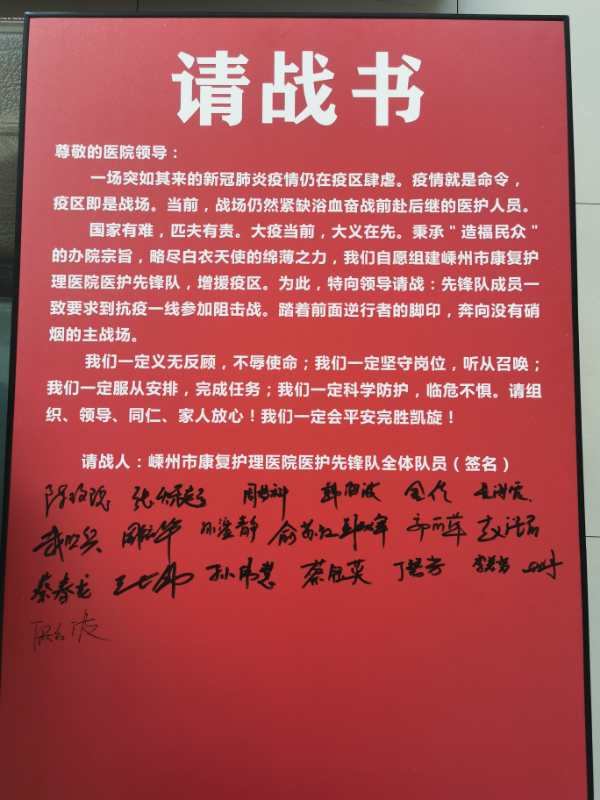 请战书
尊敬的医院领导：
一场突如其来的新冠肺炎疫情仍在疫区肆虐。疫情就是命令，
疫区即是战场。当前，战场仍然紧缺浴血奋战前赴后继的医护人员。
国家有难，匹夫有责。大疫当前，大义在先。秉承"造福民众"
的办院宗旨，略尽白衣天使的绵薄之力，我们自愿组建嵊州市康复护
理医院医护先锋队，增援疫区。为此，特向领导请战：先锋队成员一
致要求到抗疫一线参加阻击战。踏着前面逆行者的脚印，奔向没有硝
烟的主战场。
我们一定义无反顾，不辱使命；我们一定坚守岗位，听从召唤；
我们一定服从安排，完成任务；我们一定科学防护，临危不惧。请组
织、领导、同仁、家人放心！我们一定会平安完胜凯旋！
请战人：嵊州市康复护理医院医护先锋队全体队员（签名）
蔡春龙